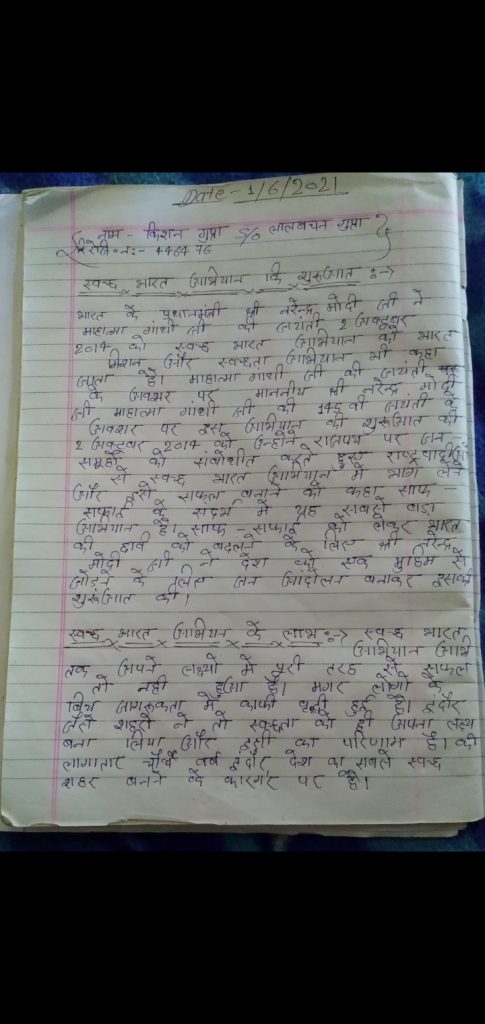 Date - 1/6/2021
नाम - किशन गुप्ता S/o लालबचन गुप्ता
रजि० नः- 446476
स्वच्छ भारत अभियान कि शुरूआत :->
भारत के प्रधानमंत्री श्री नरेन्द्र मोदी जी ने
माहात्मा गांधी जी की जयंती 2 अक्टूबर
2014 को स्वच्छ भारत अभियान को भारत
मिशन और स्वच्छता अभियान भी कहा
जाता है। माहात्मा गांधी जी की जयंती
के अवशर पर माननीय श्री नरेन्द्र मोदी
जी माहात्मा गांधी जी की 145 वी जयंती के
अवशर पर इस अभियान की शुरूआत की
2 अक्टूबर 2014 को उन्होंने राजपथ पर जन
समूहों को संबोधीत करते हुए राष्ट्रवादियों
से स्वच्छ भारत अभियान में भाग लेने
और इसे सफल बनाने को कहा साफ -
सफाई के संदर्भ में यह सबसे बड़ा
अभियान है। साफ - सफाई को लेकर भारत
की छवि को बदलने के लिए श्री नरेन्द्र
मोदी जी ने देश को एक मुहिम से
जोड़ने के लिए जन आंदोलन बनाकर इसकी
शुरूआत की।
स्वच्छ भारत अभियन के लाभ :-> स्वच्छ भारत
अभियान अभि
तक अपने लक्ष्यो में पूरी तरह से सफल
तो नही हुआ है। मगर लोगो के
बिच जागरूकता में काफी वृद्धी हुई है। इंदौर
जैसे शहरो ने तो स्वच्छता को ही अपना लक्ष्य
बना लिया और इसी का परिणाम है। की
लागातार चौथे वर्ष इंदौर देश का सबसे स्वच्छ
शहर बनने के कारगर पर है।